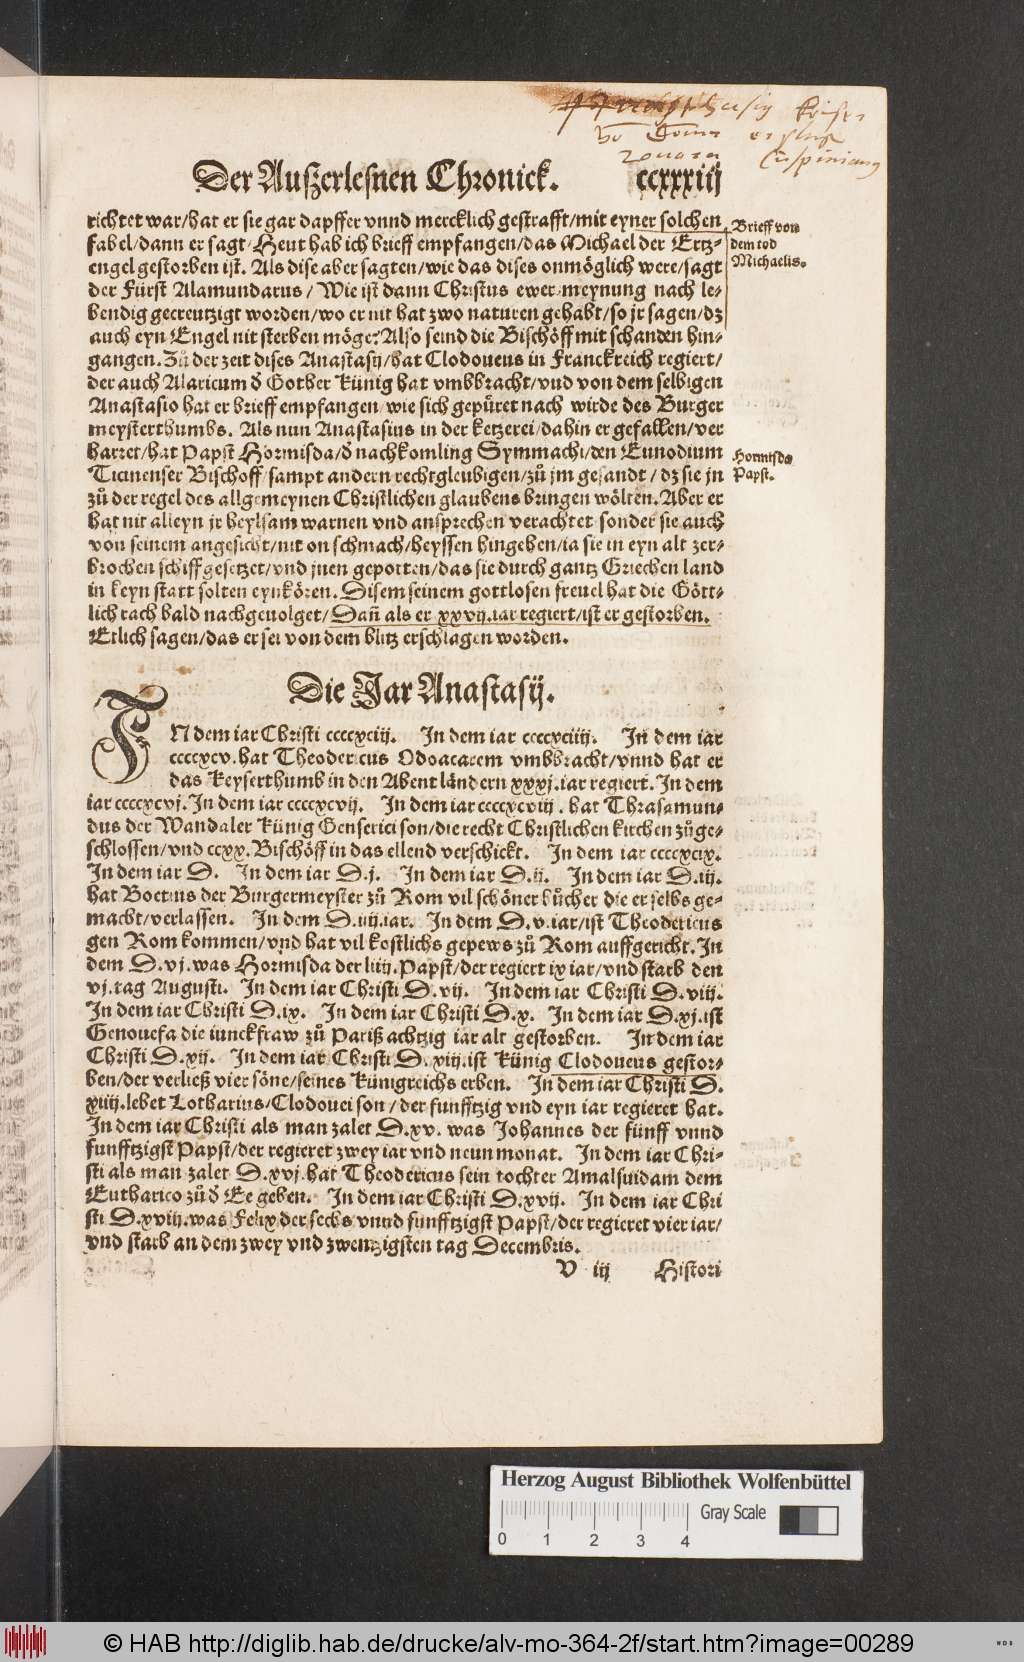 keiser
Cuspinianus
Der Außerlesnen Chronick. ccxxxiij
richtet war/hat er sie gar dapffer vnnd mercklich gestrafft/mit eyner solchen
fabel/dann er sagt/Heut hab ich brieff empfangen/das Michael der Ertz-
engel gestorben ist. Als dise aber sagten/wie das dises onmöglich were/sagt
der Fürst Alamundarus/ Wie ist dann Christus ewer meynung nach le-
bendig gecreutzigt worden/wo er nit hat zwo naturen gehabt/so jr sagen/dz
auch eyn Engel nit sterben möge? Also seind die Bischöff mit schanden hin-
gangen. Zů der zeit dises Anastasij/hat Clodoueus in Franckreich regiert/
der auch Alaricum d̃ Gother Künig hat vmbbracht/vnd von dem selbigen
Anastasio hat er brieff empfangen/wie sich gepüret nach wirde des Burger
meysterthumbs. Als nun Anastasius in der ketzerei/dahin er gefallen/ver
harret/hat Papst Hormisda/d̃ nachkomling Symmachi/den Eunodium
Ticinenser Bischoff/sampt andern rechtgleubigen/zů jm gesandt/dz sie jn
zů der regel des allgemeynen Christlichen glaubens bringen wölten. Aber er
hat nit alleyn jr heylsam warnen vnd ansprechen verachtet sonder sie auch
von seinem angesicht/nit on schmach/heyssen hingehen/ia sie in eyn alt zer-
brochen schiff gesetzet/vnd jnen gepotten/das sie durch gantz Griechen land
in keyn statt solten eynkören. Disem seinem gottlosen freuel hat die Gött-
lich rach bald nachgeuolget/Dañ als er xxvij.iar regiert/ist er gestorben.
Etlich sagen/das er sei von dem blitz erschlagen worden.
Brieff von
dem tod
Michaelis.
Hormisda
Papst.
Die Jar Anastasij.
IN dem iar Christi ccccxciij. In dem iar ccccxciiij. In dem iar
ccccxcv. hat Theodericus Odoacarem vmbbracht/vnnd hat er
das Keyserthumb in den Abent ländern xxxj.iar regiert. In dem
iar ccccxcvj. In dem iar ccccxcvij. In dem iar ccccxcviij. hat Thrasamun-
dus der Wandaler Künig Genserici son/die recht Christlichen kirchen zůge-
schlossen/vnd ccxx. Bischöff in das ellend verschickt. In dem iar ccccxcix.
In dem iar D. In dem iar D.j. In dem iar D.ij. In dem iar D.iij.
hat Boetius der Burgermeyster zů Rom vil schöner bůcher die er selbs ge-
macht/verlassen. In dem D.iiij.iar. In dem D.v.iar/ist Theodericus
gen Rom kommen/vnd hat vil kostlichs gepews zů Rom auffgericht. In
dem D.vj. was Hormisda der liiij. Papst/der regiert ix iar/vnd starb den
vj. tag Augusti. In dem iar Christi D.vij. In dem iar Christi D.viij.
In dem iar Christi D.ix. In dem iar Christi D.x. In dem iar D.xj.ist
Genouefa die iunckfraw zů Pariß achtzig iar alt gestorben. In dem iar
Christi D.xij. In dem iar Christi D.xiij.ist Künig Clodoueus gestor-
ben/der verließ vier söne/seines Künigreichs erben. In dem iar Christi D.
xiiij.lebet Lotharius/Clodouei son/der funfftzig vnd eyn iar regieret hat.
In dem iar Christi als man zalet D.xv. was Johannes der fünff vnnd
funfftzigst Papst/der regieret zwey iar vnd neun monat. In dem iar Chri-
sti als man zalet D.xvj. hat Theodericus sein tochter Amalsuidam dem
Eutharico zů d̃ Ee geben. In dem iar Christi D.xvij. In dem iar Chri
sti D.xviij.was Felix der sechs vnnd funfftzigst Papst/der regieret vier iar/
vnd starb an dem zwey vnd zwentzigsten tag Decembris.
V iij Histori
Herzog August Bibliothek Wolfenbüttel
Gray Scale
0 1 2 3 4
© HAB http://diglib.hab.de/drucke/alv-mo-364-2f/start.htm?image=00289